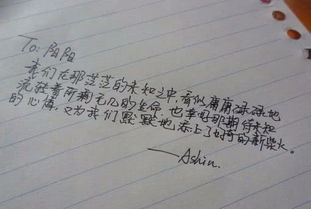 To: 阳阳
我们在那茫茫的未知之中,看似庸庸碌碌地
流驶着所剩无几的生命,也幸好那期待未知
的心情,又为我们默默地添上了好奇的新柴火。
——Ashin.